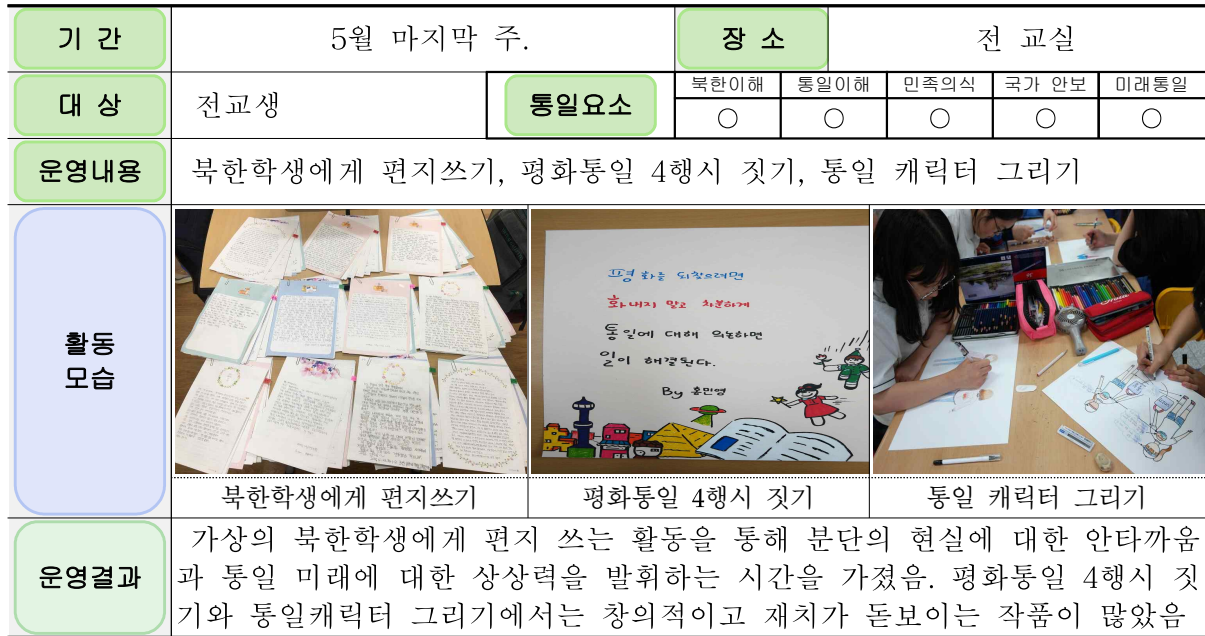 기 간
5월 마지막 주.
장 소
전 교실
대 상
전교생
통일요소
북한이해
통일이해
민족의식
국가 안보
미래통일
○
○
○
○
○
운영내용
북한학생에게 편지쓰기, 평화통일 4행시 짓기, 통일 캐릭터 그리기
활동
모습
평화를 되찾으려면
화내지 말고 차분하게
통일에 대해 의논하면
일이 해결된다.
By 홍민영
북한학생에게 편지쓰기
평화통일 4행시 짓기
통일 캐릭터 그리기
운영결과
가상의 북한학생에게 편지 쓰는 활동을 통해 분단의 현실에 대한 안타까움
과 통일 미래에 대한 상상력을 발휘하는 시간을 가졌음. 평화통일 4행시 짓
기와 통일캐릭터 그리기에서는 창의적이고 재치가 돋보이는 작품이 많았음